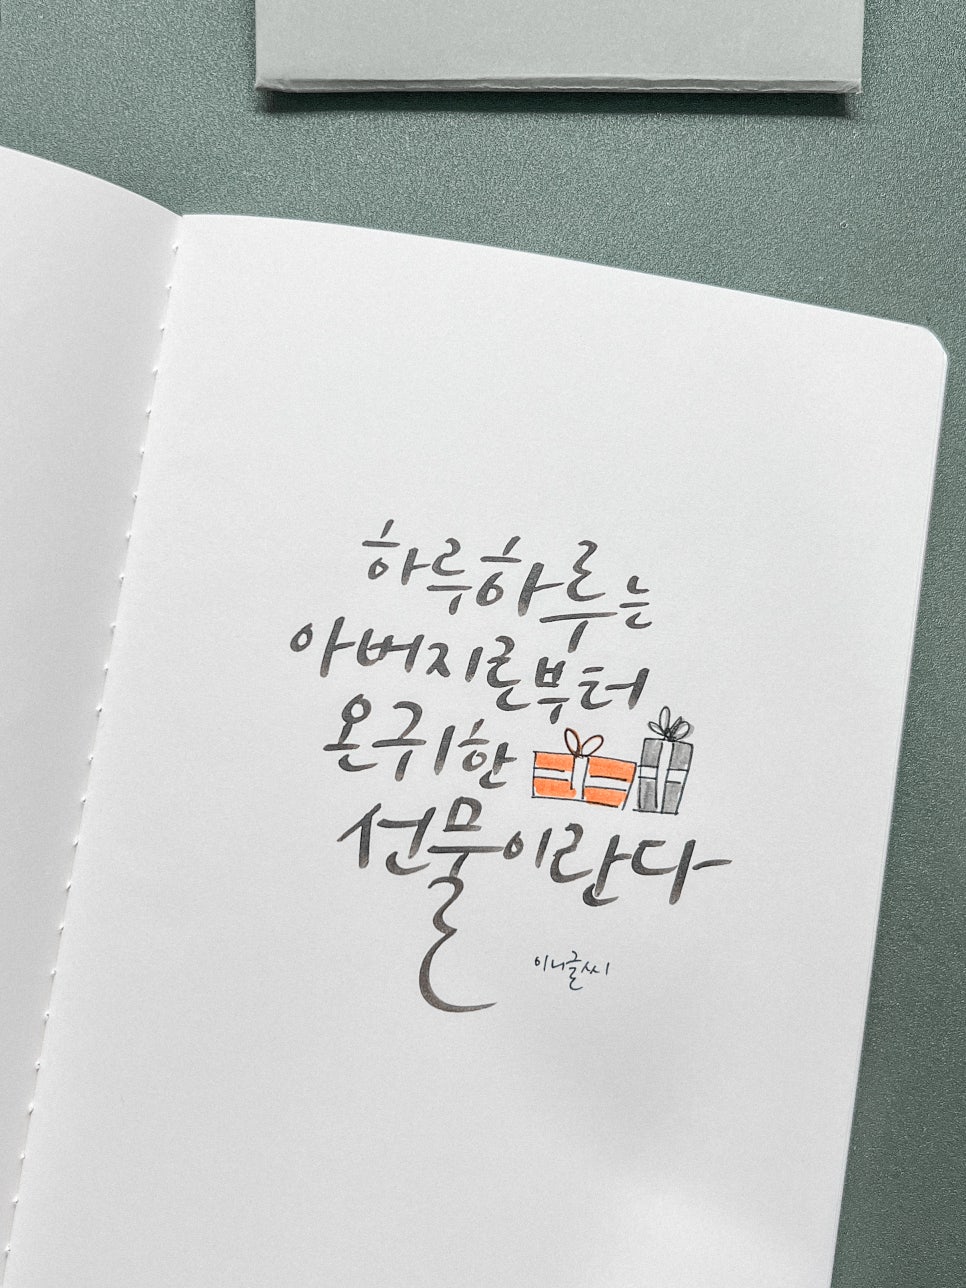 하루하루는
아버지로부터
온귀한
선물이란다
이니글씨